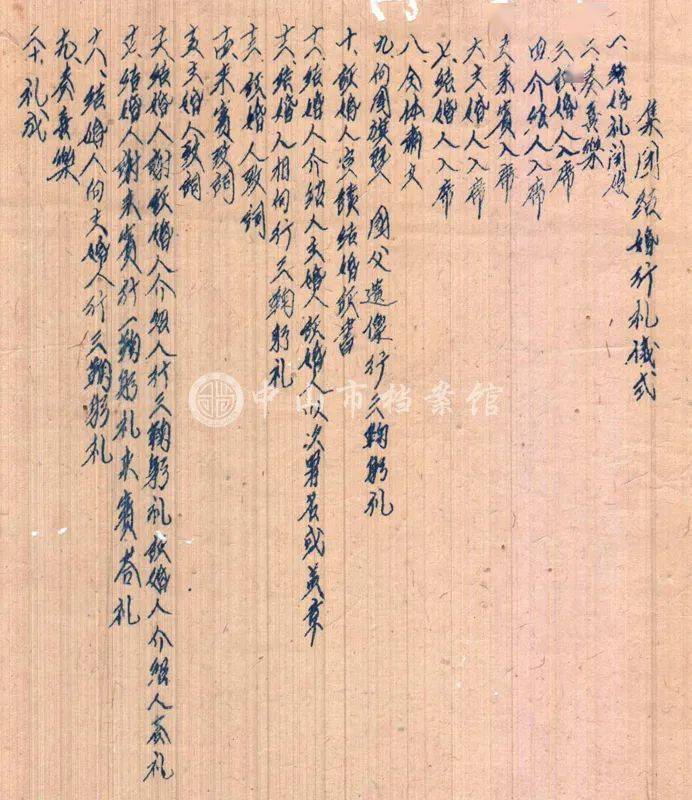 集团结婚行礼儀式
一、结婚礼開始
二、奏喜樂
三、証婚人入席
四、介绍人入席
五、来賓入席
六、主婚人入席
七、结婚人入席
八、全体肃立
九、向國旗暨 國父遺像行三鞠躬礼
十、証婚人宣讀结婚証書
十一、结婚人介绍人主婚人証婚人以次署名或盖章
十二、结婚人相向行三鞠躬礼
十三、証婚人致詞
十四、来賓致詞
十五、主婚人致詞
十六、结婚人謝証婚人介绍人行三鞠躬礼証婚人介绍人答礼
十七、结婚人謝来賓行一鞠躬礼来賓答礼
十八、结婚人向主婚人行三鞠躬礼
十九、奏喜樂
二十、礼成
中山市档案馆